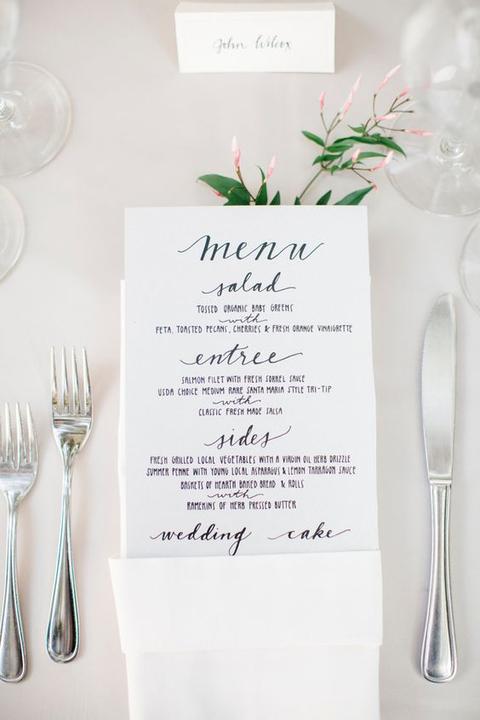 John Wilcox
menu
salad
TOSSED ORGANIC BABY GREENS
with
FETA, TOASTED PECANS, CHERRIES & FRESH ORANGE VINAIGRETTE
entree
SALMON FILET WITH FRESH SORREL SAUCE
USDA CHOICE MEDIUM RARE SANTA MARIA STYLE TRI-TIP
with
CLASSIC FRESH MADE SALSA
sides
FRESH GRILLED LOCAL VEGETABLES WITH A VIRGIN OIL HERB DRIZZLE
SUMMER PENNE WITH YOUNG LOCAL ASPARAGUS & LEMON TARRAGON SAUCE
BASKETS OF HEARTH BAKED BREAD & ROLLS
with
RAMEKINS OF HERB PRESSED BUTTER
wedding cake